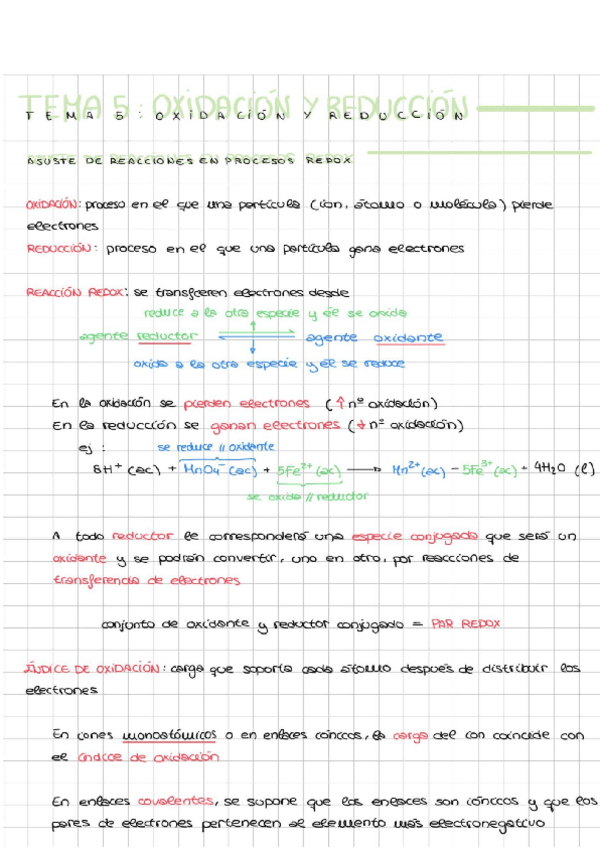 TEMA 5: OXIDACIÓN Y REDUCCIÓN
TEMA 5: OXIDACIÓN Y REDUCCIÓN
AJUSTE DE REACCIONES EN PROCESOS REDOX
OXIDACIÓN: proceso en el que una partícula (ion, átomo o molécula) pierde
electrones
REDUCCIÓN: proceso en el que una partícula gana electrones
REACCIÓN REDOX: se transfieren electrones desde
reduce a la otra especie y él se oxida
agente reductor agente oxidante
oxida a la otra especie y él se reduce
En la oxidación se pierden electrones (↑ nº oxidación)
En la reducción se ganan electrones (↓ nº oxidación)
ej: se reduce // oxidante
8H⁺ (ac) + MnO₄⁻ (ac) + 5Fe²⁺ (ac) ⟶ Mn²⁺ (ac) - 5Fe³⁺ (ac) + 4H₂O (l)
se oxida // reductor
A todo reductor le corresponderá una especie conjugada que será un
oxidante y se podrán convertir, uno en otro, por reacciones de
transferencia de electrones
conjunto de oxidante y reductor conjugado = PAR REDOX
ÍNDICE DE OXIDACIÓN: carga que soporta cada átomo después de distribuir los
electrones
En iones monoatómicos o en enlaces iónicos, la carga del ion coincide con
el índice de oxidación
En enlaces covalentes, se supone que los enlaces son iónicos y que los
pares de electrones pertenecen al elemento más electronegativo